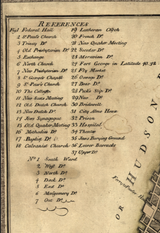 REFERENCES
Fig. Federal Hall
1 St Pauls Church
2 Trinity Do
3 Old Presbyterian Do
4 Exchange
5 North Church
6 New Presbyterian Do
7 St Georges Chapel
8 St Peters Church
9 The College
10 New Scots Meeting
11 Old Dutch Church
12 New Dutch Do
13 Jew Synagogue
14 Prison
15 Old Quaker Meeting
16 Methodist Do
17 Baptist Do
18 Calvanist Church
19 Lutheran Church
20 French Do
21 New Quaker Meeting
22 Moravian Do
25 Fly Market
26 Oswego Do
27 Bear Do
28 Peck's Slip Do
29 New Do
30 Bridewell
32 Poor House
33 Hospital
34 Theatre
35 Jews Burying Ground
36 Lower Barracks
37 Upper Do
No 1 South Ward
2 West Do
3 North Do
4 Dock Do
5 East Do
6 Montgomery Do
7 Out Do
OR HUDSON